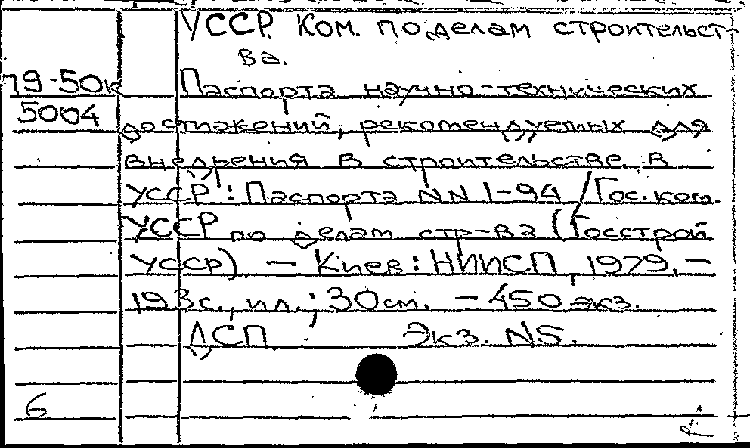 УССР. Ком. по делам строительст-
ва.
79-50к Паспорта научно-технических
5004 достижений, рекомендуемых для
внедрения в строительстве в
УССР: Паспорта NN 1-94 / Гос. ком.
УССР по делам стр-ва (Госстрой
УССР) — Киев: НИИСП, 1979. —
193с., ил.; 30см. — 450 экз.
ДСП Экз. N5.
6